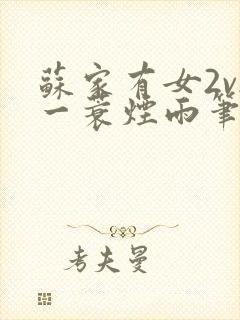 蘇家有女2v
一蓑煙雨筆
考夫曼